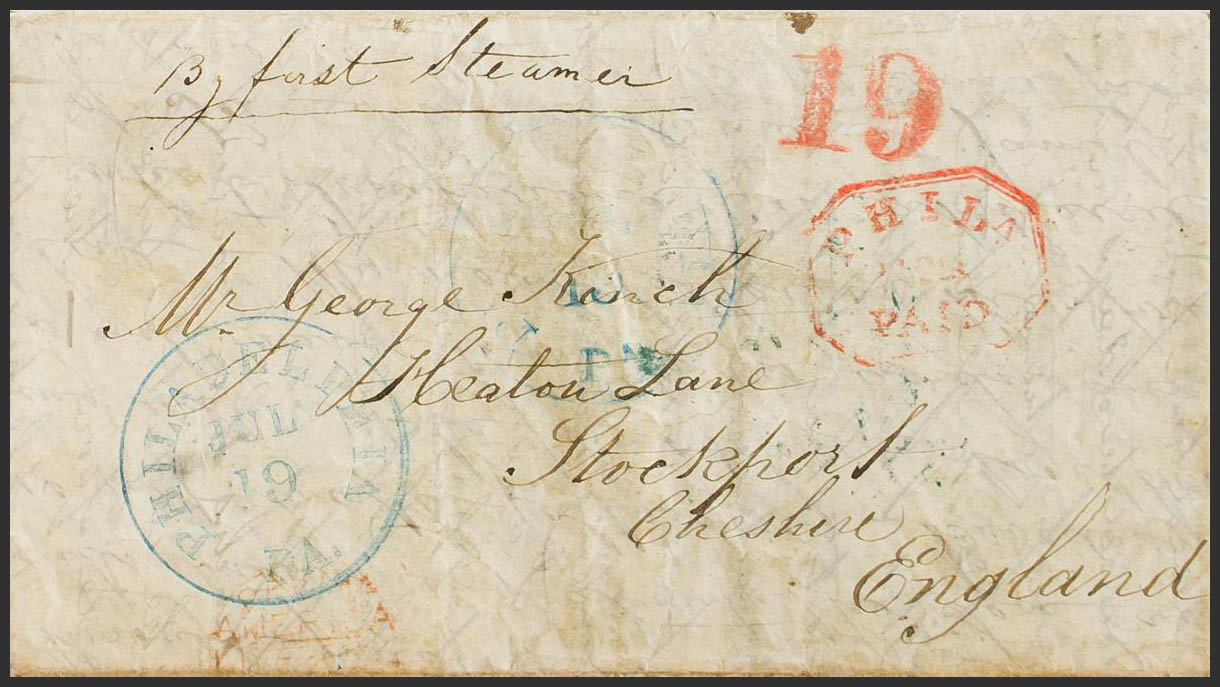 By first Steamer
19
PHILA
PAID
Mr George Kinch
Heaton Lane
Stockport
Cheshire
England
PHILADELPHIA
JUL
19
PA.
PA
AMERICA